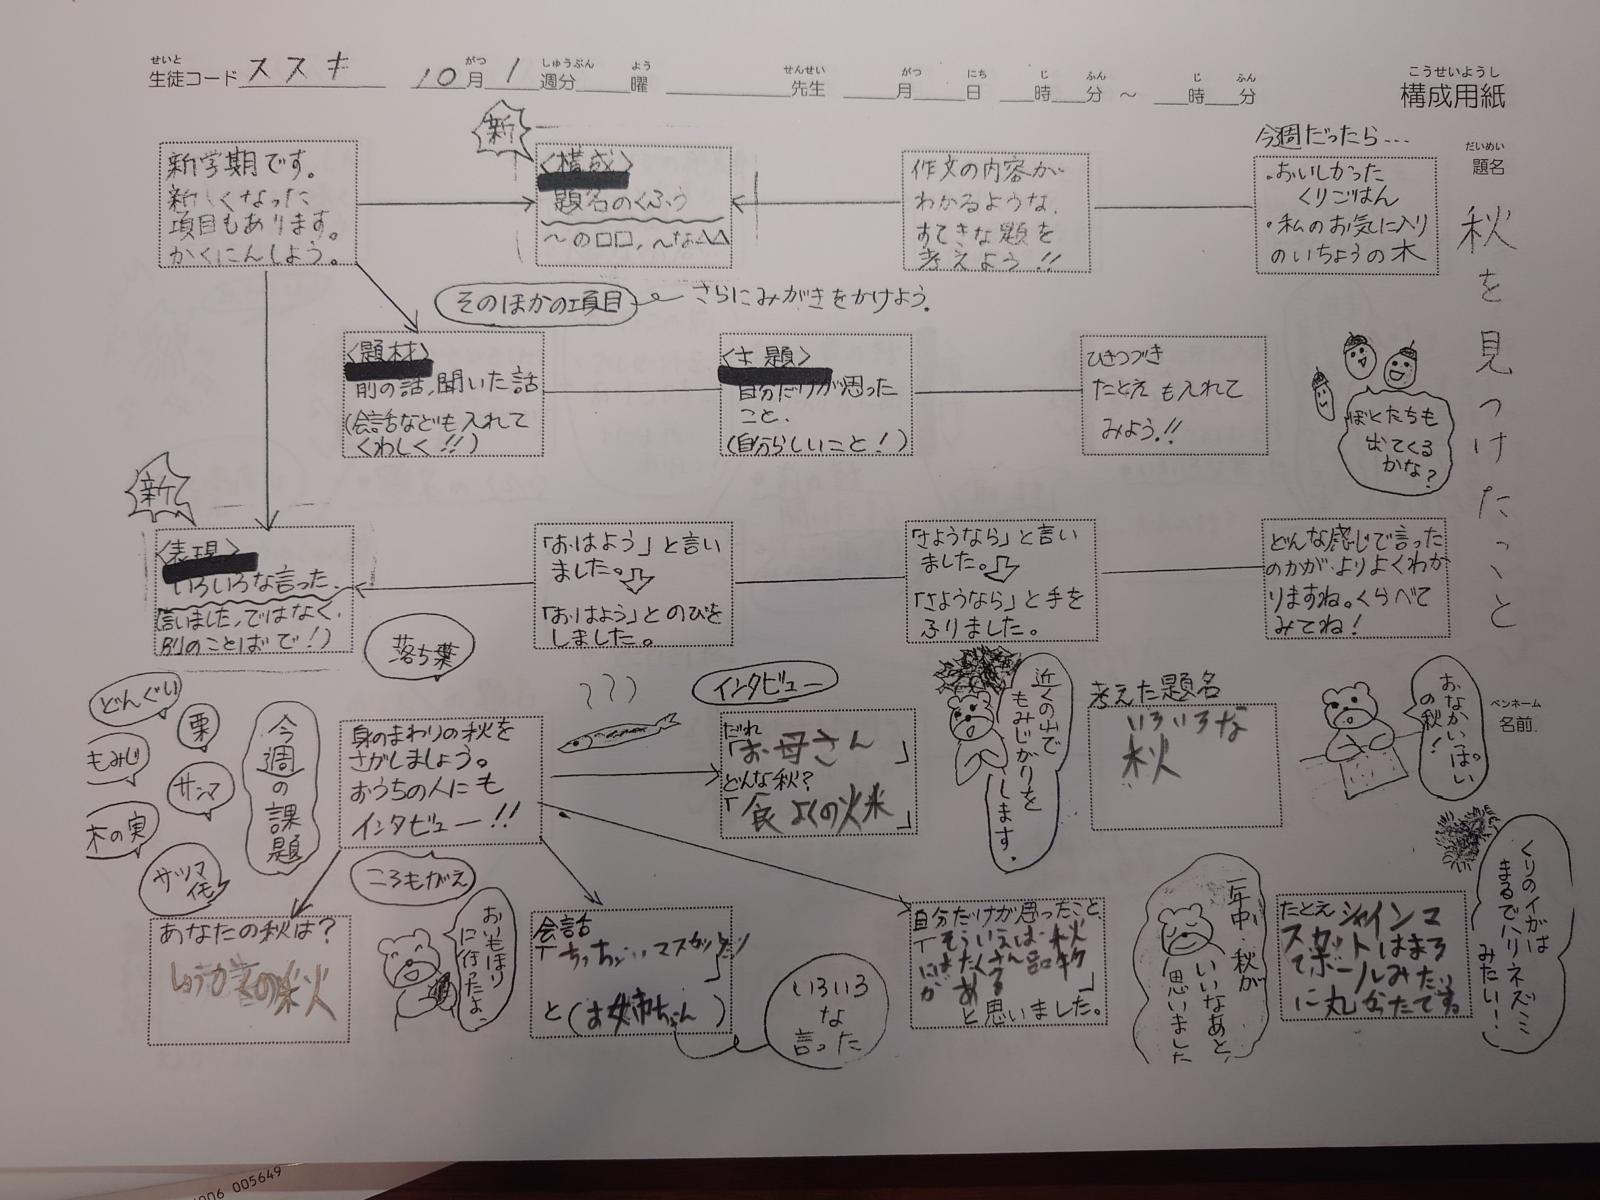 せいと
生徒コード ススキ
がつ しゅうぶん よう
10月1週分 曜
せんせい
先生
がつ にち じ ふん じ ふん
月 日 時 分 ～ 時 分
こうせいようし
構成用紙
だいめい
題名
秋を見つけたこと
新学期です。
新しくなった
項目もあります。
かくにんしよう。
新
〈構成〉
題名のくふう
～の□□,～な△△
作文の内容が
わかるような,
すてきな題を
考えよう!!
今週だったら…
・おいしかった
くりごはん
・私のお気に入り
のいちょうの木
そのほかの項目
さらにみがきをかけよう。
〈題材〉
前の話,聞いた話
(会話なども入れて
くわしく!!)
〈主題〉
自分だけが思った
こと、
(自分らしいこと!)
ひきつづき
たとえも入れて
みよう!!
ぼくたちも
出てくる
かな?
新
〈表現〉
いろいろな言った、
言いました,ではなく,
別のことばで!)
「おはよう」と言い
ました。
「おはよう」とのびを
しました。
「さようなら」と言い
ました。
「さようなら」と手を
ふりました。
どんな感じで言った
のかが,よりよくわか
りますね。くらべて
みてね!
落ち葉
どんぐり
栗
もみじ
サンマ
木の実
サツマ
イモ
今週の課題
身のまわりの秋を
さがしましょう。
おうちの人にも
インタビュー!!
ころもがえ
インタビュー
だれ
「お母さん」
どんな秋?
「食よくの秋」
近くの山で
もみじがりを
します。
考えた題名
いろいろな
秋
ペンネーム
名前
おなかいっぱい
の秋!
あなたの秋は?
おいもほり
に行ったよ。
会話
と(お姉ちゃん)
いろいろ
な
言った
自分だけが思ったこと、
「そういえば、秋
にはたくさん品物
がある」
と思いました。
一年中、秋が
いいなあと、
思いました
たとえ シャインマ
スカットはまる
でボールみたい
に丸かったです。
くりのイガは
まるでハリネズミ
みたい!
005649